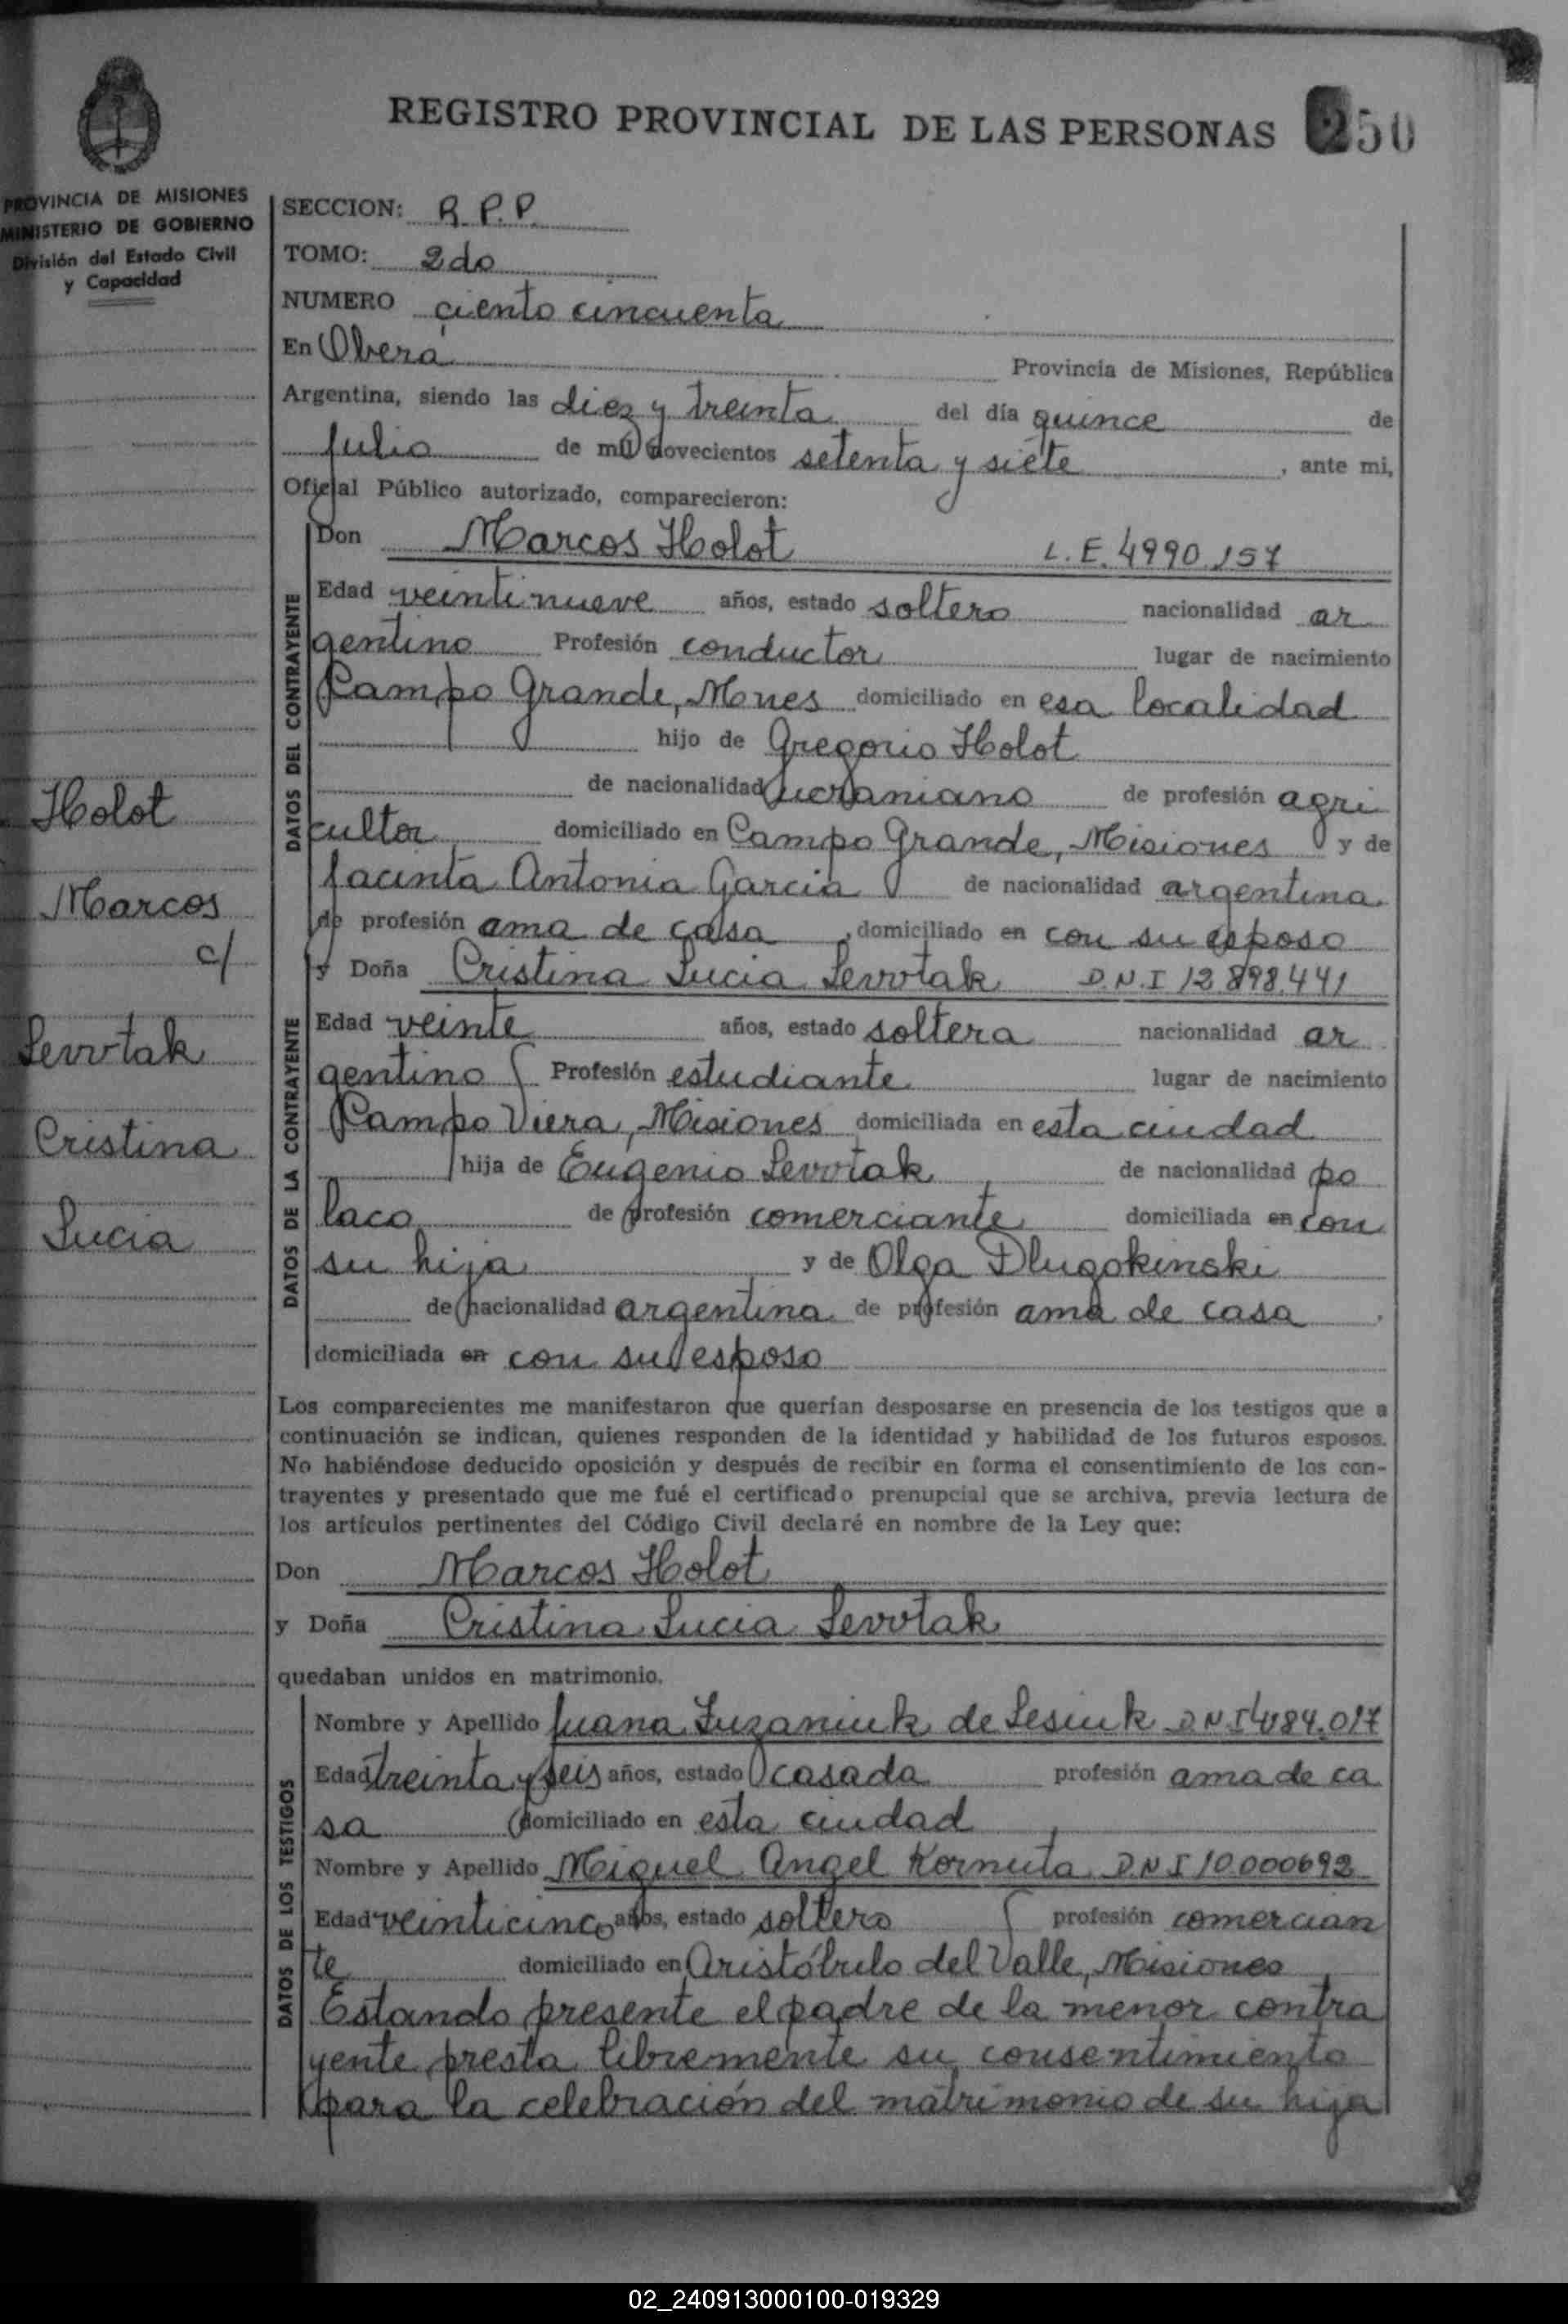 REGISTRO PROVINCIAL DE LAS PERSONAS 250
PROVINCIA DE MISIONES
MINISTERIO DE GOBIERNO
División del Estado Civil
y Capacidad
SECCION: R.P.P.
TOMO: 2do
NUMERO ciento cincuenta
En Oberá Provincia de Misiones, República
Argentina, siendo las diez y treinta del día quince de
Julio de mil novecientos setenta y siete, ante mi,
Oficial Público autorizado, comparecieron:
DATOS DEL CONTRAYENTE
Don Marcos Holot L.E. 4990.157
Edad veintinueve años, estado soltero nacionalidad ar
gentino Profesión conductor lugar de nacimiento
Campo Grande, Mnes domiciliado en esa localidad
hijo de Gregorio Holot
de nacionalidad ucraniano de profesión agri
cultor domiciliado en Campo Grande, Misiones y de
Jacinta Antonia Garcia de nacionalidad argentina
de profesión ama de casa, domiciliado en con su esposo
Holot
Marcos
c/
Sevvtak
Cristina
Lucia
y Doña Cristina Lucia Sevvtak D.N.I 12.898.441
DATOS DE LA CONTRAYENTE
Edad veinte años, estado soltera nacionalidad ar
gentino Profesión estudiante lugar de nacimiento
Campo Viera, Misiones domiciliada en esta ciudad
hija de Eugenio Sevvtak de nacionalidad po
laco de profesión comerciante domiciliada en con
su hija y de Olga Dlugokinski
de nacionalidad argentina de profesión ama de casa
domiciliada en con su esposo
Los comparecientes me manifestaron que querían desposarse en presencia de los testigos que a
continuación se indican, quienes responden de la identidad y habilidad de los futuros esposos.
No habiéndose deducido oposición y después de recibir en forma el consentimiento de los con-
trayentes y presentado que me fué el certificado prenupcial que se archiva, previa lectura de
los artículos pertinentes del Código Civil declaré en nombre de la Ley que:
Don Marcos Holot
y Doña Cristina Lucia Sevvtak
quedaban unidos en matrimonio.
DATOS DE LOS TESTIGOS
Nombre y Apellido Juana Luzaniuk de Sesiuk D.N.I
Edad treinta y seis años, estado casada profesión ama de ca
sa domiciliado en esta ciudad
Nombre y Apellido Miguel Angel Kornuta D.N.I 10.000692
Edad veinticinco años, estado soltero profesión comercian
te domiciliado en Aristóbulo del Valle, Misiones
Estando presente el padre de la menor contra
yente presta libremente su consentimiento
para la celebración del matrimonio de su hija
02_240913000100-019329